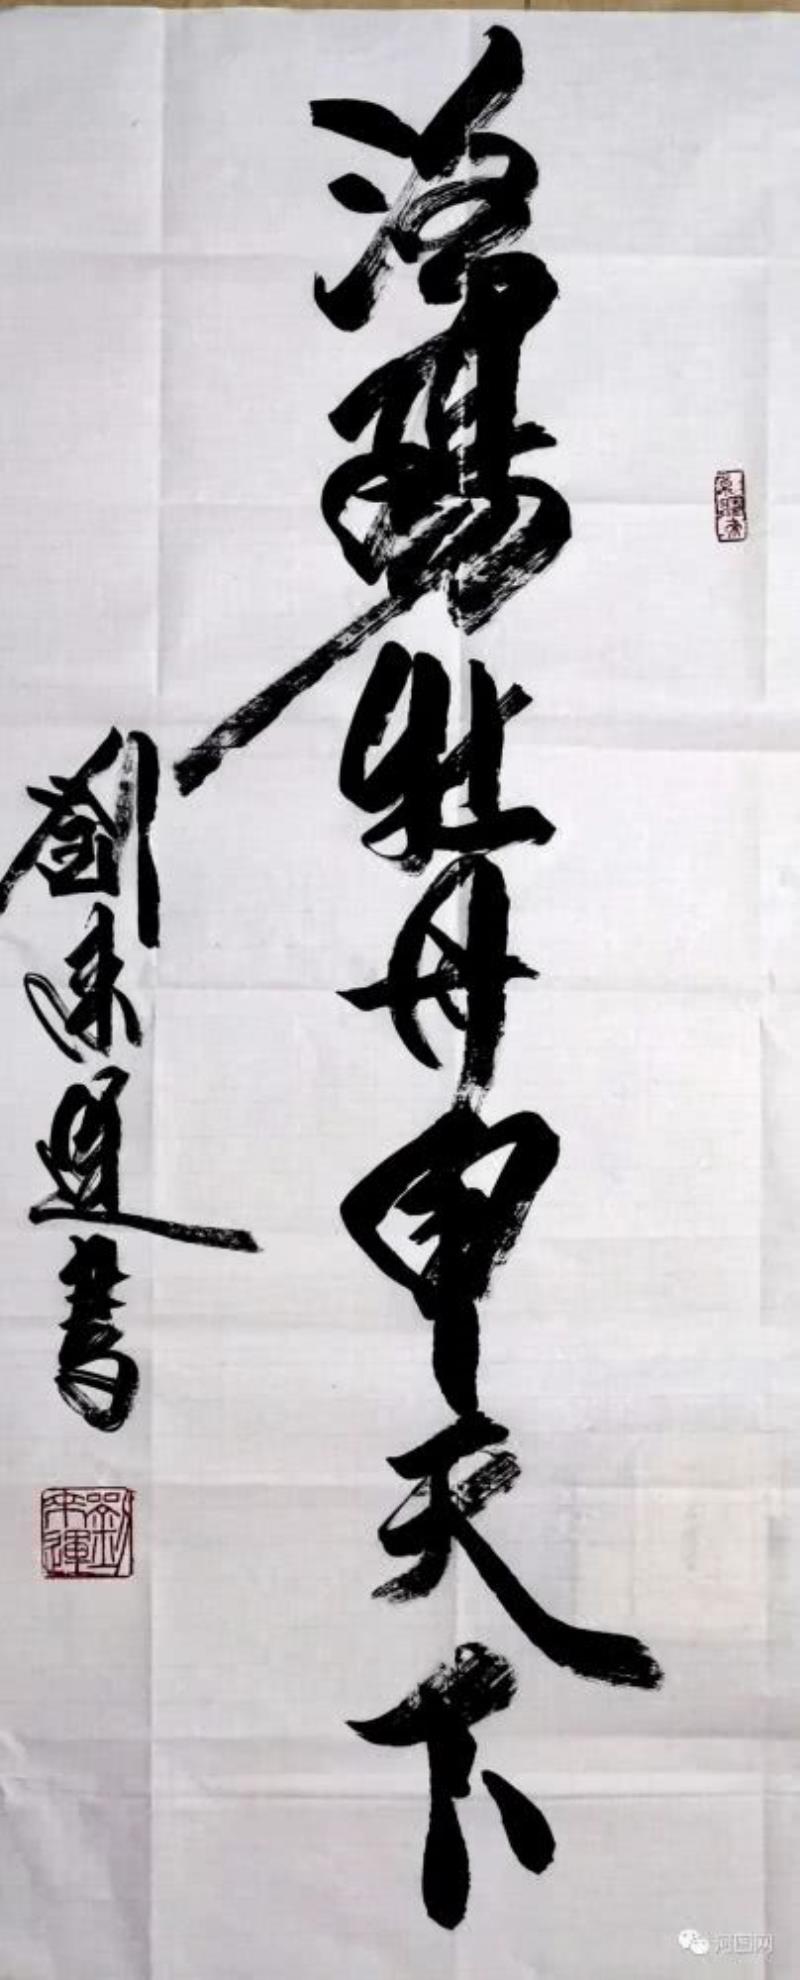 洛陽牡丹甲天下
劉来運書
劉来運
河图网